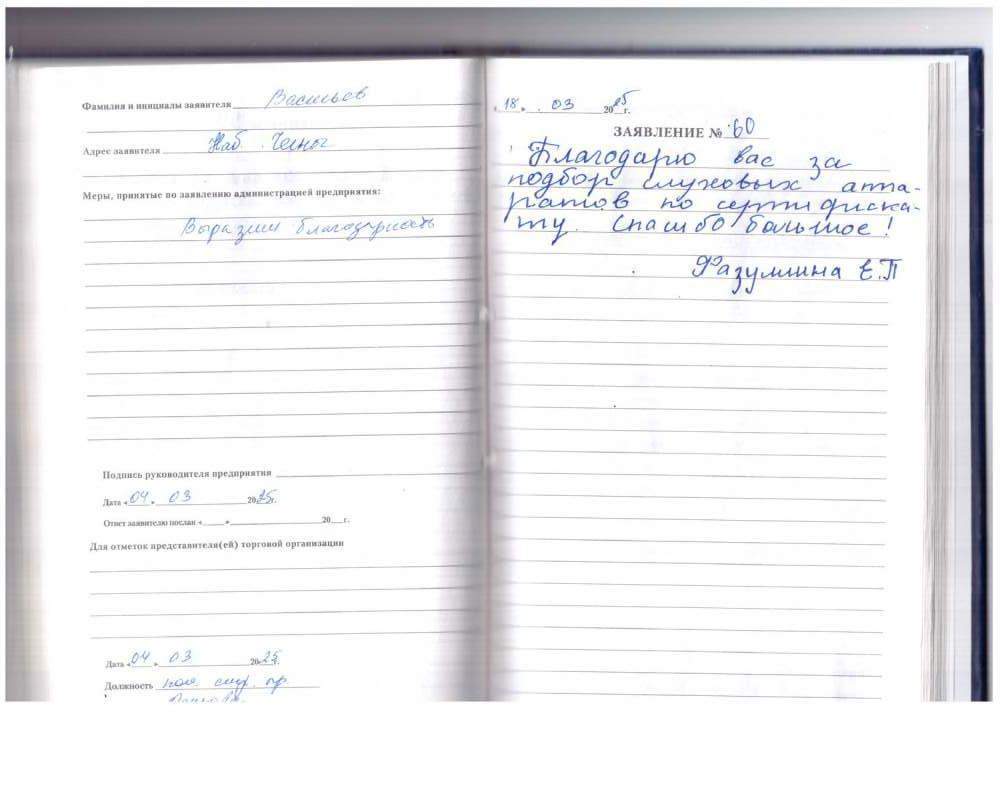 Фамилия и инициалы заявителя Васильев
Адрес заявителя Наб. Челны
Меры, принятые по заявлению администрацией предприятия:
Выразили благодарность
Подпись руководителя предприятия
Дата «04» 03 2025г.
Ответ заявителю послан « » 20 г.
Для отметок представителя(ей) торговой организации
Дата «04» 03 2025г.
Должность
« 18 » 03 2025 г.
ЗАЯВЛЕНИЕ № 60
Благодарю вас за
подбор слуховых аппа-
ратов по сертифика-
ту. Спасибо большое!
Фазуллина Е.П